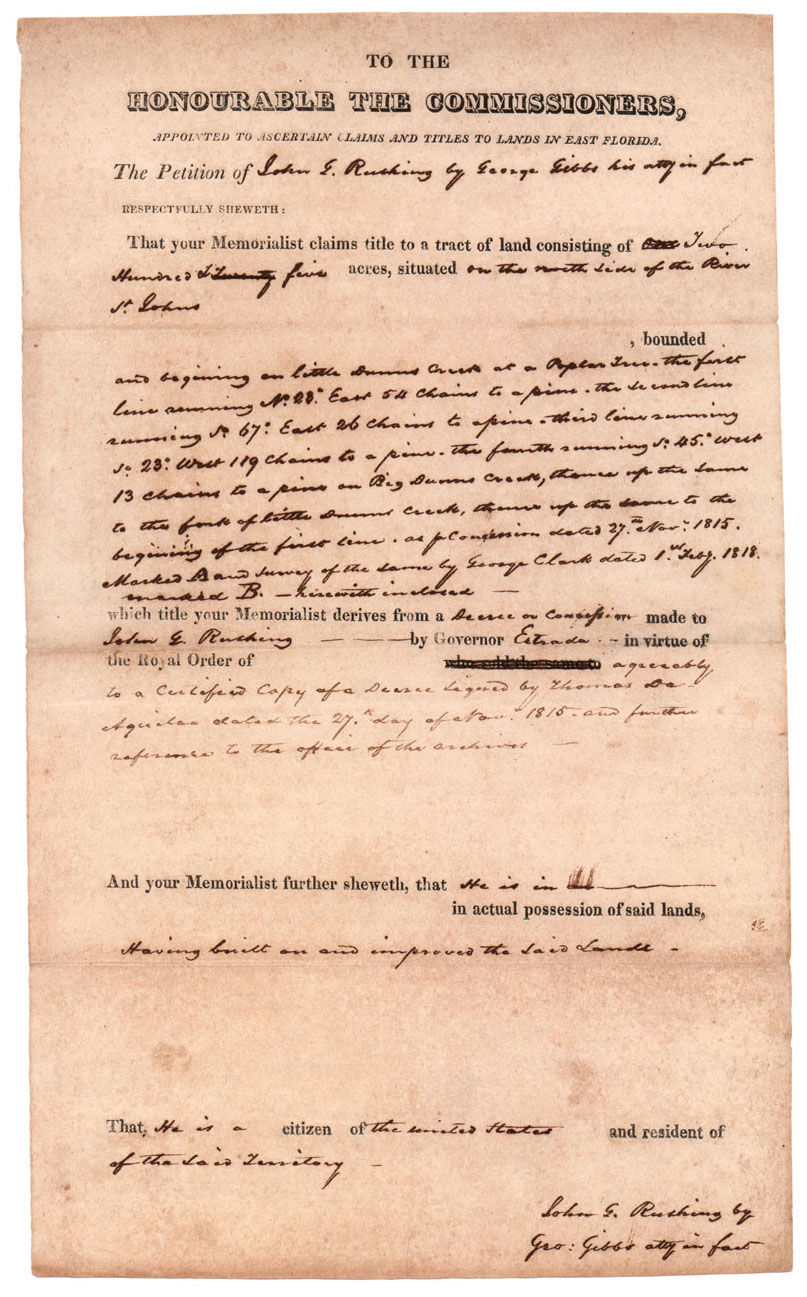 TO THE
HONOURABLE THE COMMISSIONERS,
APPOINTED TO ASCERTAIN CLAIMS AND TITLES TO LANDS IN EAST FLORIDA.
The Petition of John G. Rushing by George Gibbs his atty in fact
RESPECTFULLY SHEWETH:
That your Memorialist claims title to a tract of land consisting of One Two
Hundred & Twenty five acres, situated on the north side of the River
St Johns
, bounded
and begining on little Dunns Creek at a Poplar Tree - the first
line running No. 23° East 54 Chains to a pine - the second line
running So 67° East 26 Chains to a pine - third line running
So 23° West 119 Chains to a pine - the fourth running So 45° West
13 Chains to a pine on Big Dunns Creek, thence up the same
to the fork of little Dunns Creek, thence up the same to the
begining of the first line - as p Concession dated 27th Nov. 1815.
Marked A and Survey of the same by George Clark dated 1st Feby. 1818.
marked B. - herewith inclosed -
which title your Memorialist derives from a Decree or Concession made to
John G. Rushing - - - by Governor Estrada - - in virtue of
the Royal Order of agreeably
to a Certified Copy of a Decree signed by Thomas De
Aguilar dated the 27th day of Nov. 1815 - and further
reference to the office of the archives -
And your Memorialist further sheweth, that He is in
in actual possession of said lands,
Having built on and improved the said Lands -
That, He is a citizen of the united States and resident of
of the said Territory -
John G. Rushing by
Geo: Gibbs atty in fact